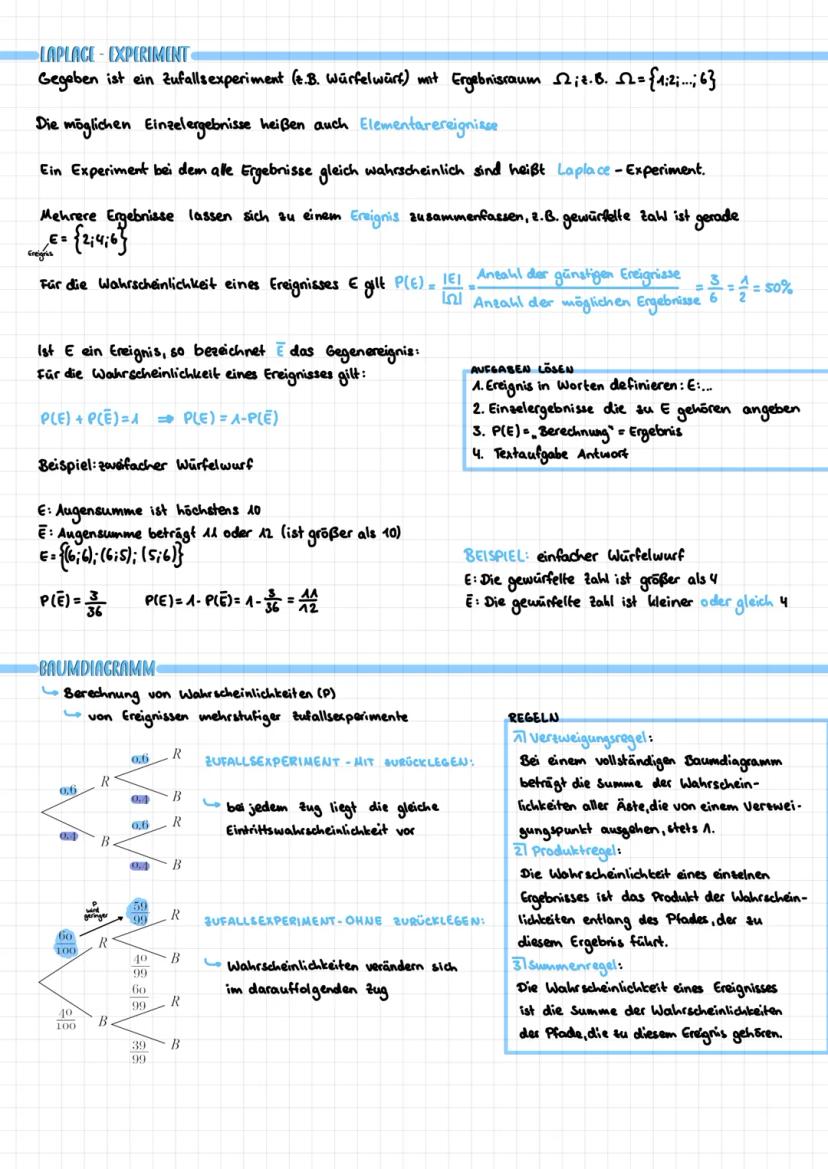 LAPLACE - EXPERIMENT
Gegeben ist ein Zufallsexperiment (z.B. Würfelwurf) mit Ergebnisraum Ω; z.B. Ω = {1;2;...;6}
Die möglichen Einzelergebnisse heißen auch Elementarereignisse
Ein Experiment bei dem alle Ergebnisse gleich wahrscheinlich sind heißt Laplace - Experiment.
Mehrere Ergebnisse lassen sich zu einem Ereignis zusammenfassen, z.B. gewürfelte Zahl ist gerade
E = {2;4;6}
Ereignis
Für die Wahrscheinlichkeit eines Ereignisses E gilt P(E) = |E| / |Ω| = Anzahl der günstigen Ereignisse / Anzahl der möglichen Ergebnisse = 3/6 = 1/2 = 50%
Ist E ein Ereignis, so bezeichnet E̅ das Gegenereignis:
Für die Wahrscheinlichkeit eines Ereignisses gilt:
P(E) + P(E̅) = 1 ⇒ P(E) = 1-P(E̅)
AUFGABEN LÖSEN
1. Ereignis in Worten definieren: E:...
2. Einzelergebnisse die zu E gehören angeben
3. P(E) = „Berechnung" = Ergebnis
4. Textaufgabe Antwort
Beispiel: zweifacher Würfelwurf
E: Augensumme ist höchstens 10
E̅: Augensumme beträgt 11 oder 12 (ist größer als 10)
E = {(6;6); (6;5); (5;6)}
P(E̅) = 3/36 P(E) = 1 - P(E̅) = 1 - 3/36 = 11/12
BEISPIEL: einfacher Würfelwurf
E: Die gewürfelte Zahl ist größer als 4
E̅: Die gewürfelte Zahl ist kleiner oder gleich 4
BAUMDIAGRAMM
↳ Berechnung von Wahrscheinlichkeiten (P)
↳ von Ereignissen mehrstufiger Zufallsexperimente
0,6
R
0,6
R
0,4
B
0,4
B
0,6
R
0,4
B
ZUFALLSEXPERIMENT - MIT ZURÜCKLEGEN:
↳ bei jedem Zug liegt die gleiche
Eintrittswahrscheinlichkeit vor
P
wird
geringer
60/100
R
59/99
R
40/99
B
40/100
B
60/99
R
39/99
B
ZUFALLSEXPERIMENT - OHNE ZURÜCKLEGEN:
↳ Wahrscheinlichkeiten verändern sich
im darauffolgenden Zug
REGELN
1) Verzweigungsregel:
Bei einem vollständigen Baumdiagramm
beträgt die Summe der Wahrschein-
lichkeiten aller Äste, die von einem Verzwei-
gungspunkt ausgehen, stets 1.
2) Produktregel:
Die Wahrscheinlichkeit eines einzelnen
Ergebnisses ist das Produkt der Wahrschein-
lichkeiten entlang des Pfades, der zu
diesem Ergebnis führt.
3) Summenregel:
Die Wahrscheinlichkeit eines Ereignisses
ist die Summe der Wahrscheinlichkeiten
der Pfade, die zu diesem Ereignis gehören.